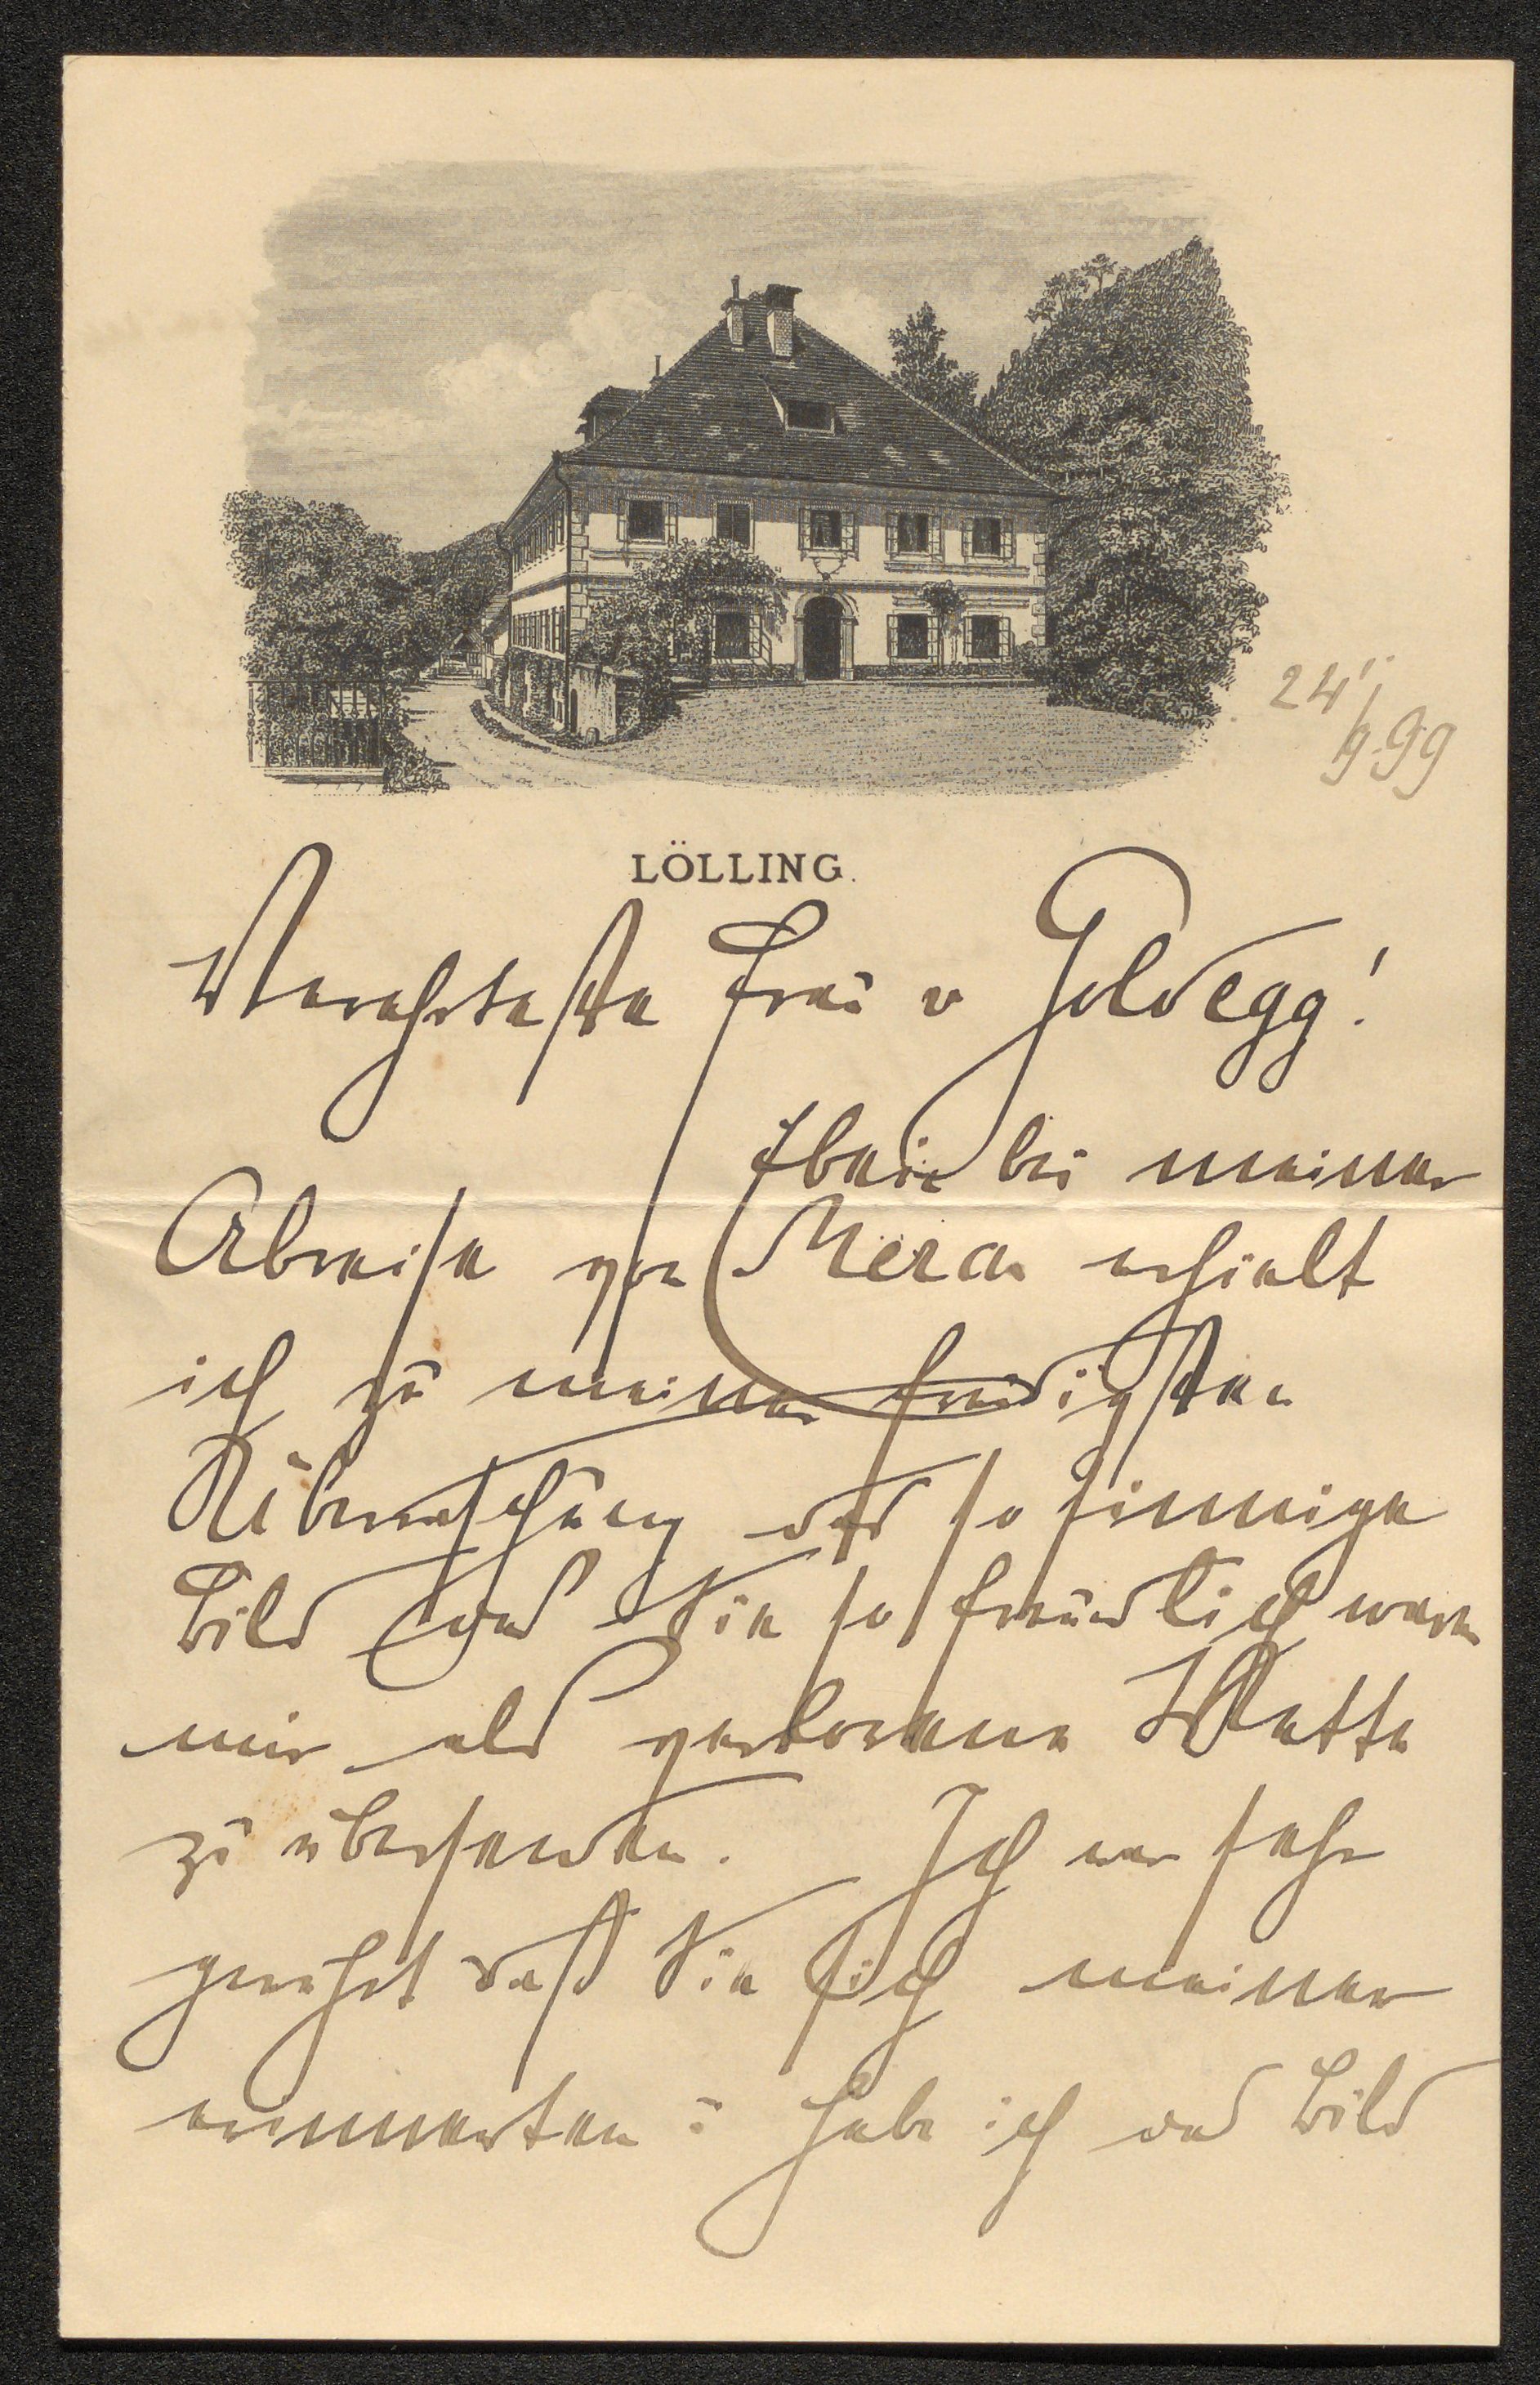 24/9.99
LÖLLING.
Verehrteste Frau v Goldegg!
Eben bei meiner
Abreise von Meran erhielt
ich zu meiner freudigsten
Überraschung das so sinnige
Bild das Sie so freundlich waren
mir als verlorene Wette
zu übersenden. Ich war sehr
gerührt daß Sie sich meiner
erinnerten u habe ich das Bild